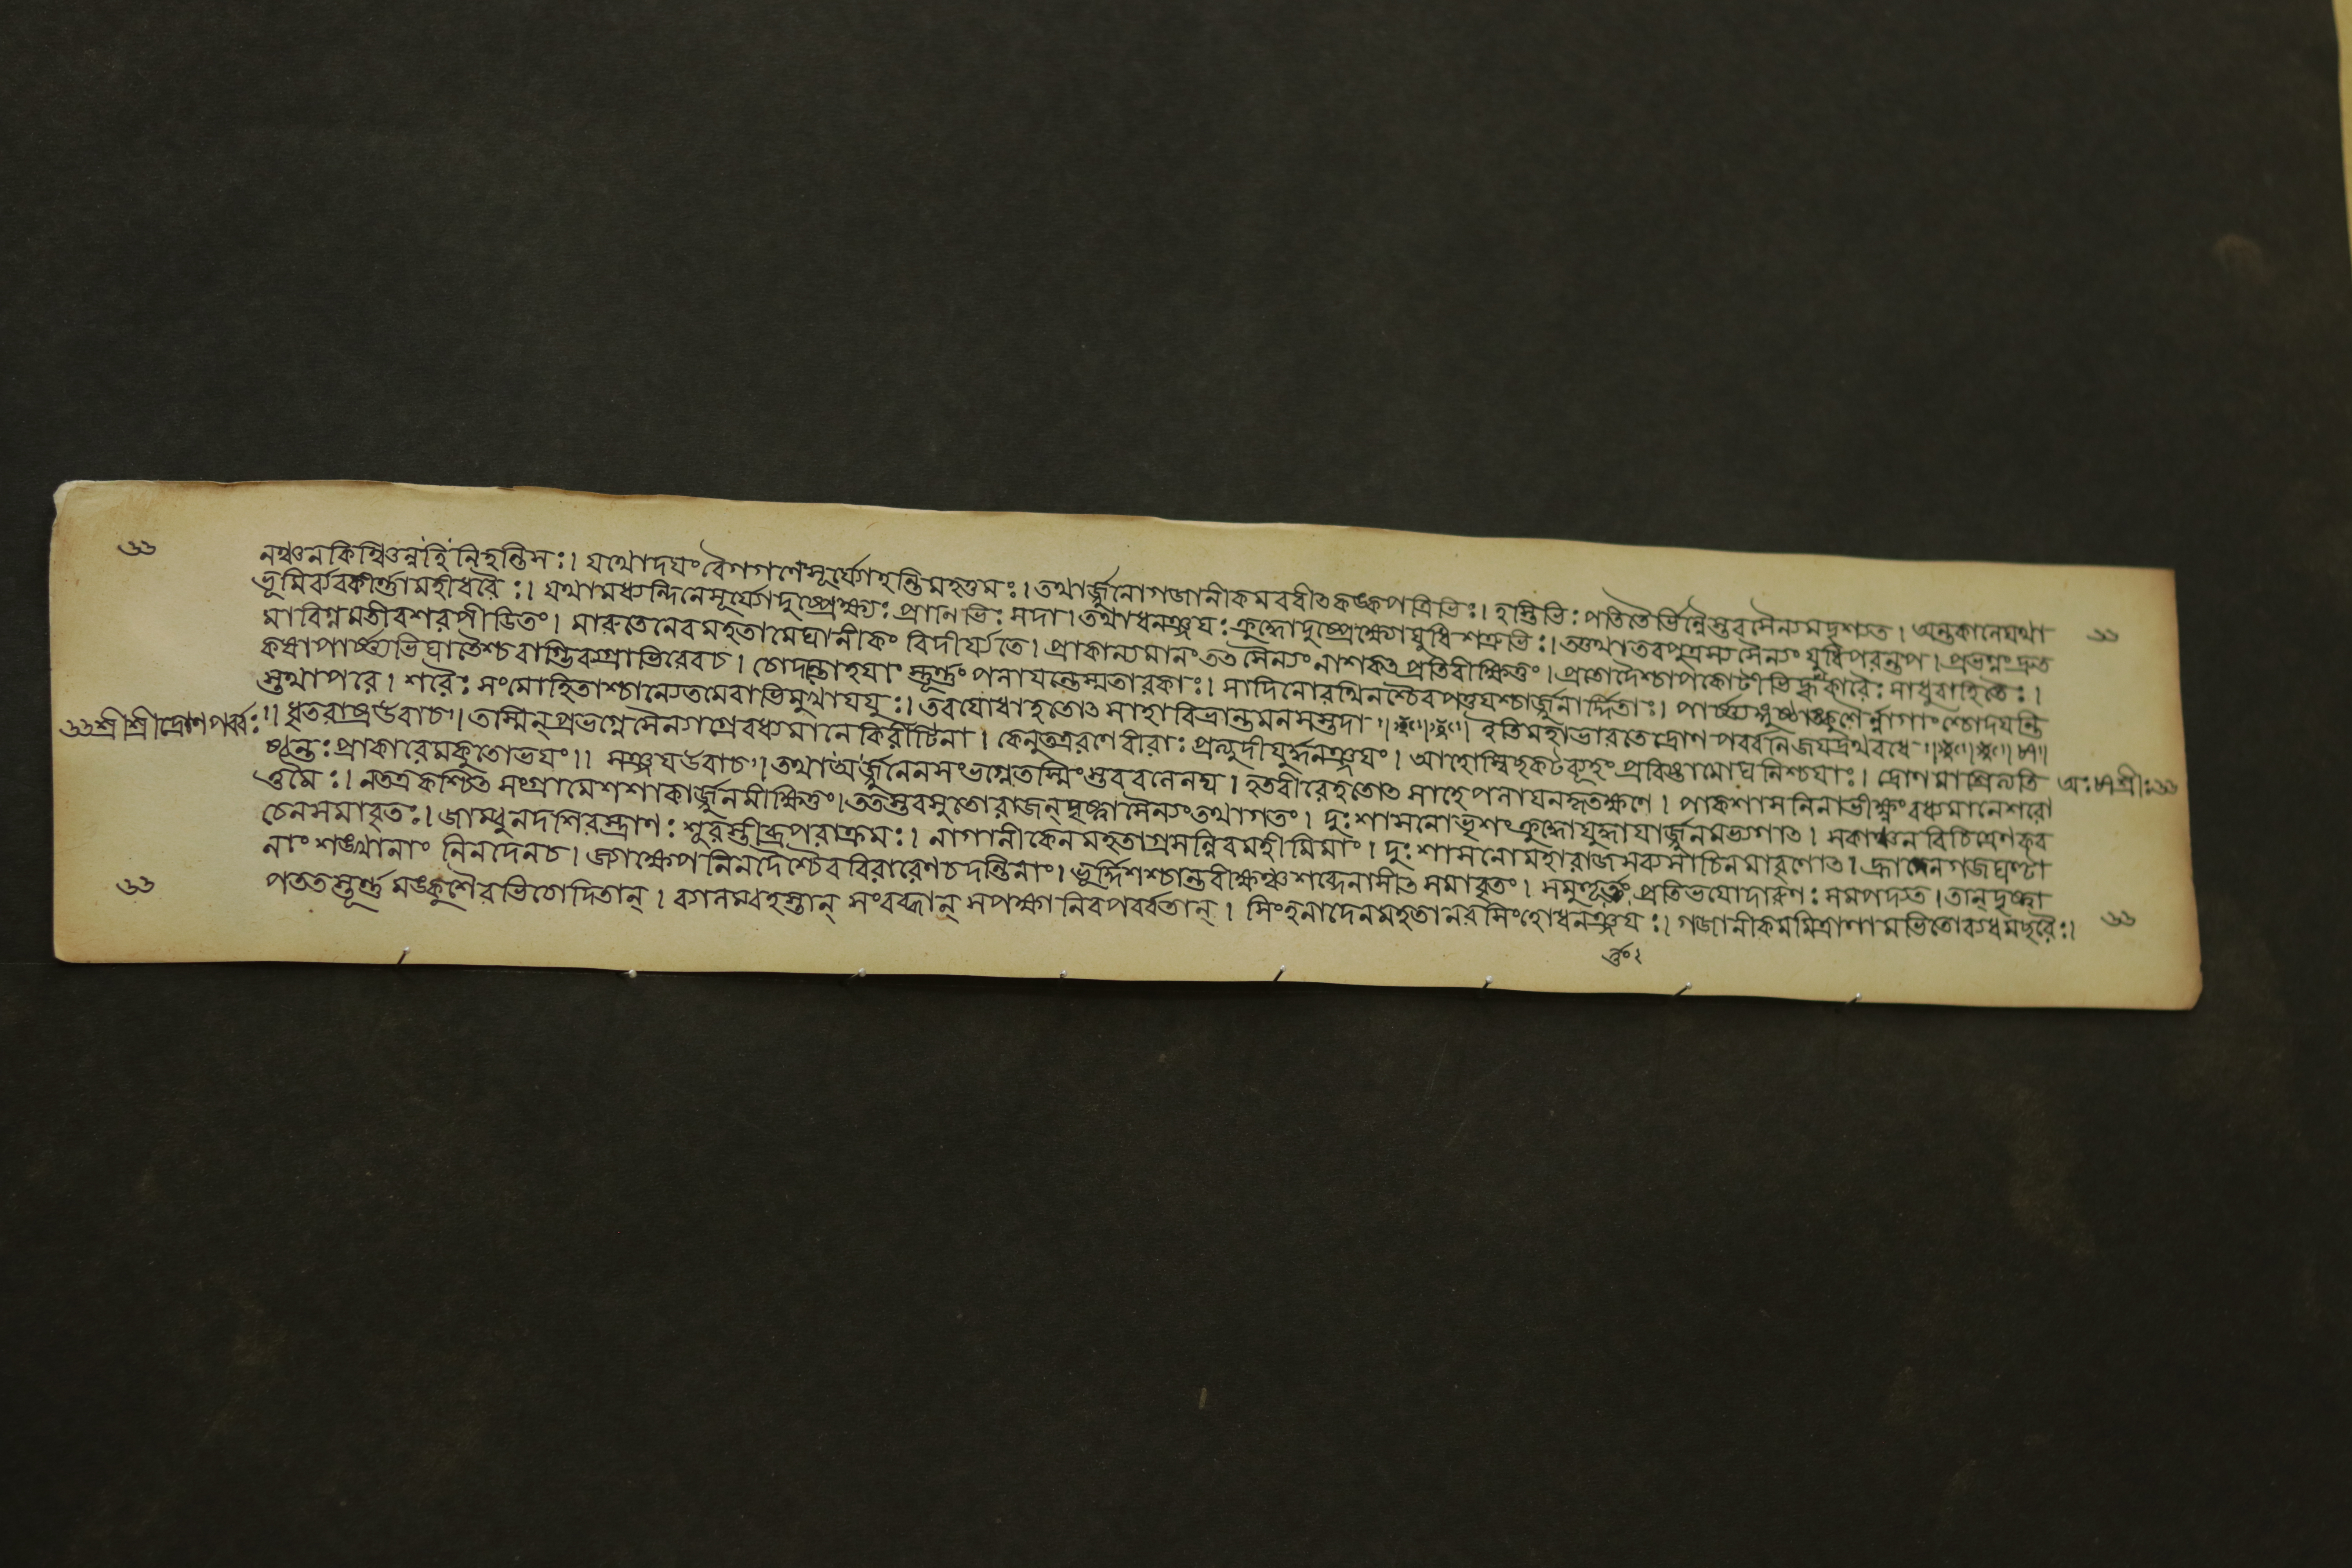 নঞ্চন কিঞ্চিত্তন্নহি নিহন্তিসঃ। যথোদযংবৈগগণেসূর্য্যোহন্তিমহত্তমঃ। তথার্জ্জুনোগজানীকমবধীৎকঙ্কপত্রিভিঃ। হস্তিভিঃ পতিতৈর্ভিন্নৈস্তবসৈন্যমদৃশ্যত। অন্তকালেযথা
ভূমির্ব্যবকীর্ণ্ণামহীধরৈঃ। যথামধ্যন্দিনেসূর্য্যোদুষ্প্রেক্ষ্যঃ প্রানিভিঃ সদা। তথাধনঞ্জযঃ ক্রুদ্ধোদুষ্প্রেক্ষ্যোযুধিশত্রুভিঃ। তত্তথাতবপুত্রস্যসৈন্যং যুধিপরন্তপ। প্রভগ্নংদ্রুত
মাবিগ্নমতীবশরপীডিতং। মারুতেনেবমহতামেঘানীকং বিদীর্য্যতে। প্রাকাল্যমানং তৎ সৈন্যং নাশকৎ প্রতিবীক্ষিতুং। প্রতোদৈশ্চাপকোটীভির্হূঁকারৈঃ সাধুবাহিতৈঃ।
কষাপার্ষ্ণ্যভিঘাতৈশ্চবাগ্ভিরুগ্রাভিরেবচ। চোদযন্তোহযাং স্তূর্ণ্ণং পলাযন্তেস্মতাবকাঃ। সাদিনোরথিনশ্চৈবপত্তযশ্চার্জ্জুনার্দ্দিতাঃ। পার্ষ্ণ্যঙ্গুষ্ঠাঙ্কুশৈর্ন্নাগাংশ্চোদযন্তি
স্তথাপরে। শরৈঃ সংমোহিতাশ্চান্যেতমেবাভিমুখাযযুঃ। তবযোধাহতোৎসাহাবিভ্রান্তমনসস্তদা॥ ইতিমহাভারতেদ্রোণ পর্ব্বনিজযদ্রথবধে॥ ৮৭॥
৬৬ শ্রীশ্রীদ্রোণপর্ব্বঃ ॥ ধৃতরাষ্ট্রউবাচ॥ তস্মিন্ প্রভগ্নেসৈন্যাগ্রেবধ্যমানেকিরীটিনা। কেনুতত্ররণেবীরাঃ প্রত্যুদীযুর্দ্ধনঞ্জযং। আহোস্বিছকটব্যূহং প্রবিষ্টামোঘনিশ্চযাঃ। দ্রোণমাশ্রিত্যতি অঃ ৮৭ শ্রীঃ ৬৬
ষ্ঠন্তঃ প্রাকারমকুতোভযং॥ সঞ্জযউবাচ॥ তথাঅর্জ্জুনেনসংভগ্নেতস্মিংস্তববলেনঘ। হতবীরেহতোৎসাহেপলাযনকৃতক্ষণে। পাকশাসনিনাভীক্ষ্ণং বধ্যমানেশরো
ত্তমৈঃ। নতত্রকশ্চিৎ সংগ্রামেশশাকার্জ্জুনমীক্ষিতুং। ততস্তবসুতোরাজন্ দৃষ্ট্বাসৈন্যংতথাগতং। দুঃশাসনোভৃশংক্রুদ্ধোযুদ্ধাযার্জ্জুনমভ্যগাৎ। সকাঞ্চনবিচিত্রেণকব
চেনসমাবৃতঃ। জাম্বুনদশিরস্ত্রাণঃ শূরস্তীব্রপরাক্রমঃ। নাগানীকেনমহতাগ্রসন্নিবমহীমিমাং। দুঃশাসনোমহারাজসব্যসাচিনমাবৃণোৎ। হ্রাদেনগজঘণ্টা
নাং শঙ্খানাং নিনদেনচ। জ্যাক্ষেপনিনদৈশ্চৈববিরাবেণচদন্তিনাং। ভূর্দ্দিশশ্চান্তরীক্ষঞ্চশব্দেনাসীৎ সমাবৃতং। সমুহূর্ত্তং প্রতিভযোদারুণঃ সমপদ্যত। তান্ দৃষ্ট্বা
পততস্তূর্ণ্ণমঙ্কুশৈরভিচোদিতান্। ব্যালম্বহস্তান্ সংরব্ধান্ সপক্ষানিবপর্ব্বতান্। সিংহনাদেনমহতানরসিংহোধনঞ্জযঃ। গজানীকমমিত্রাণামভিতোব্যধমছরৈঃ।
র্ত্তং।